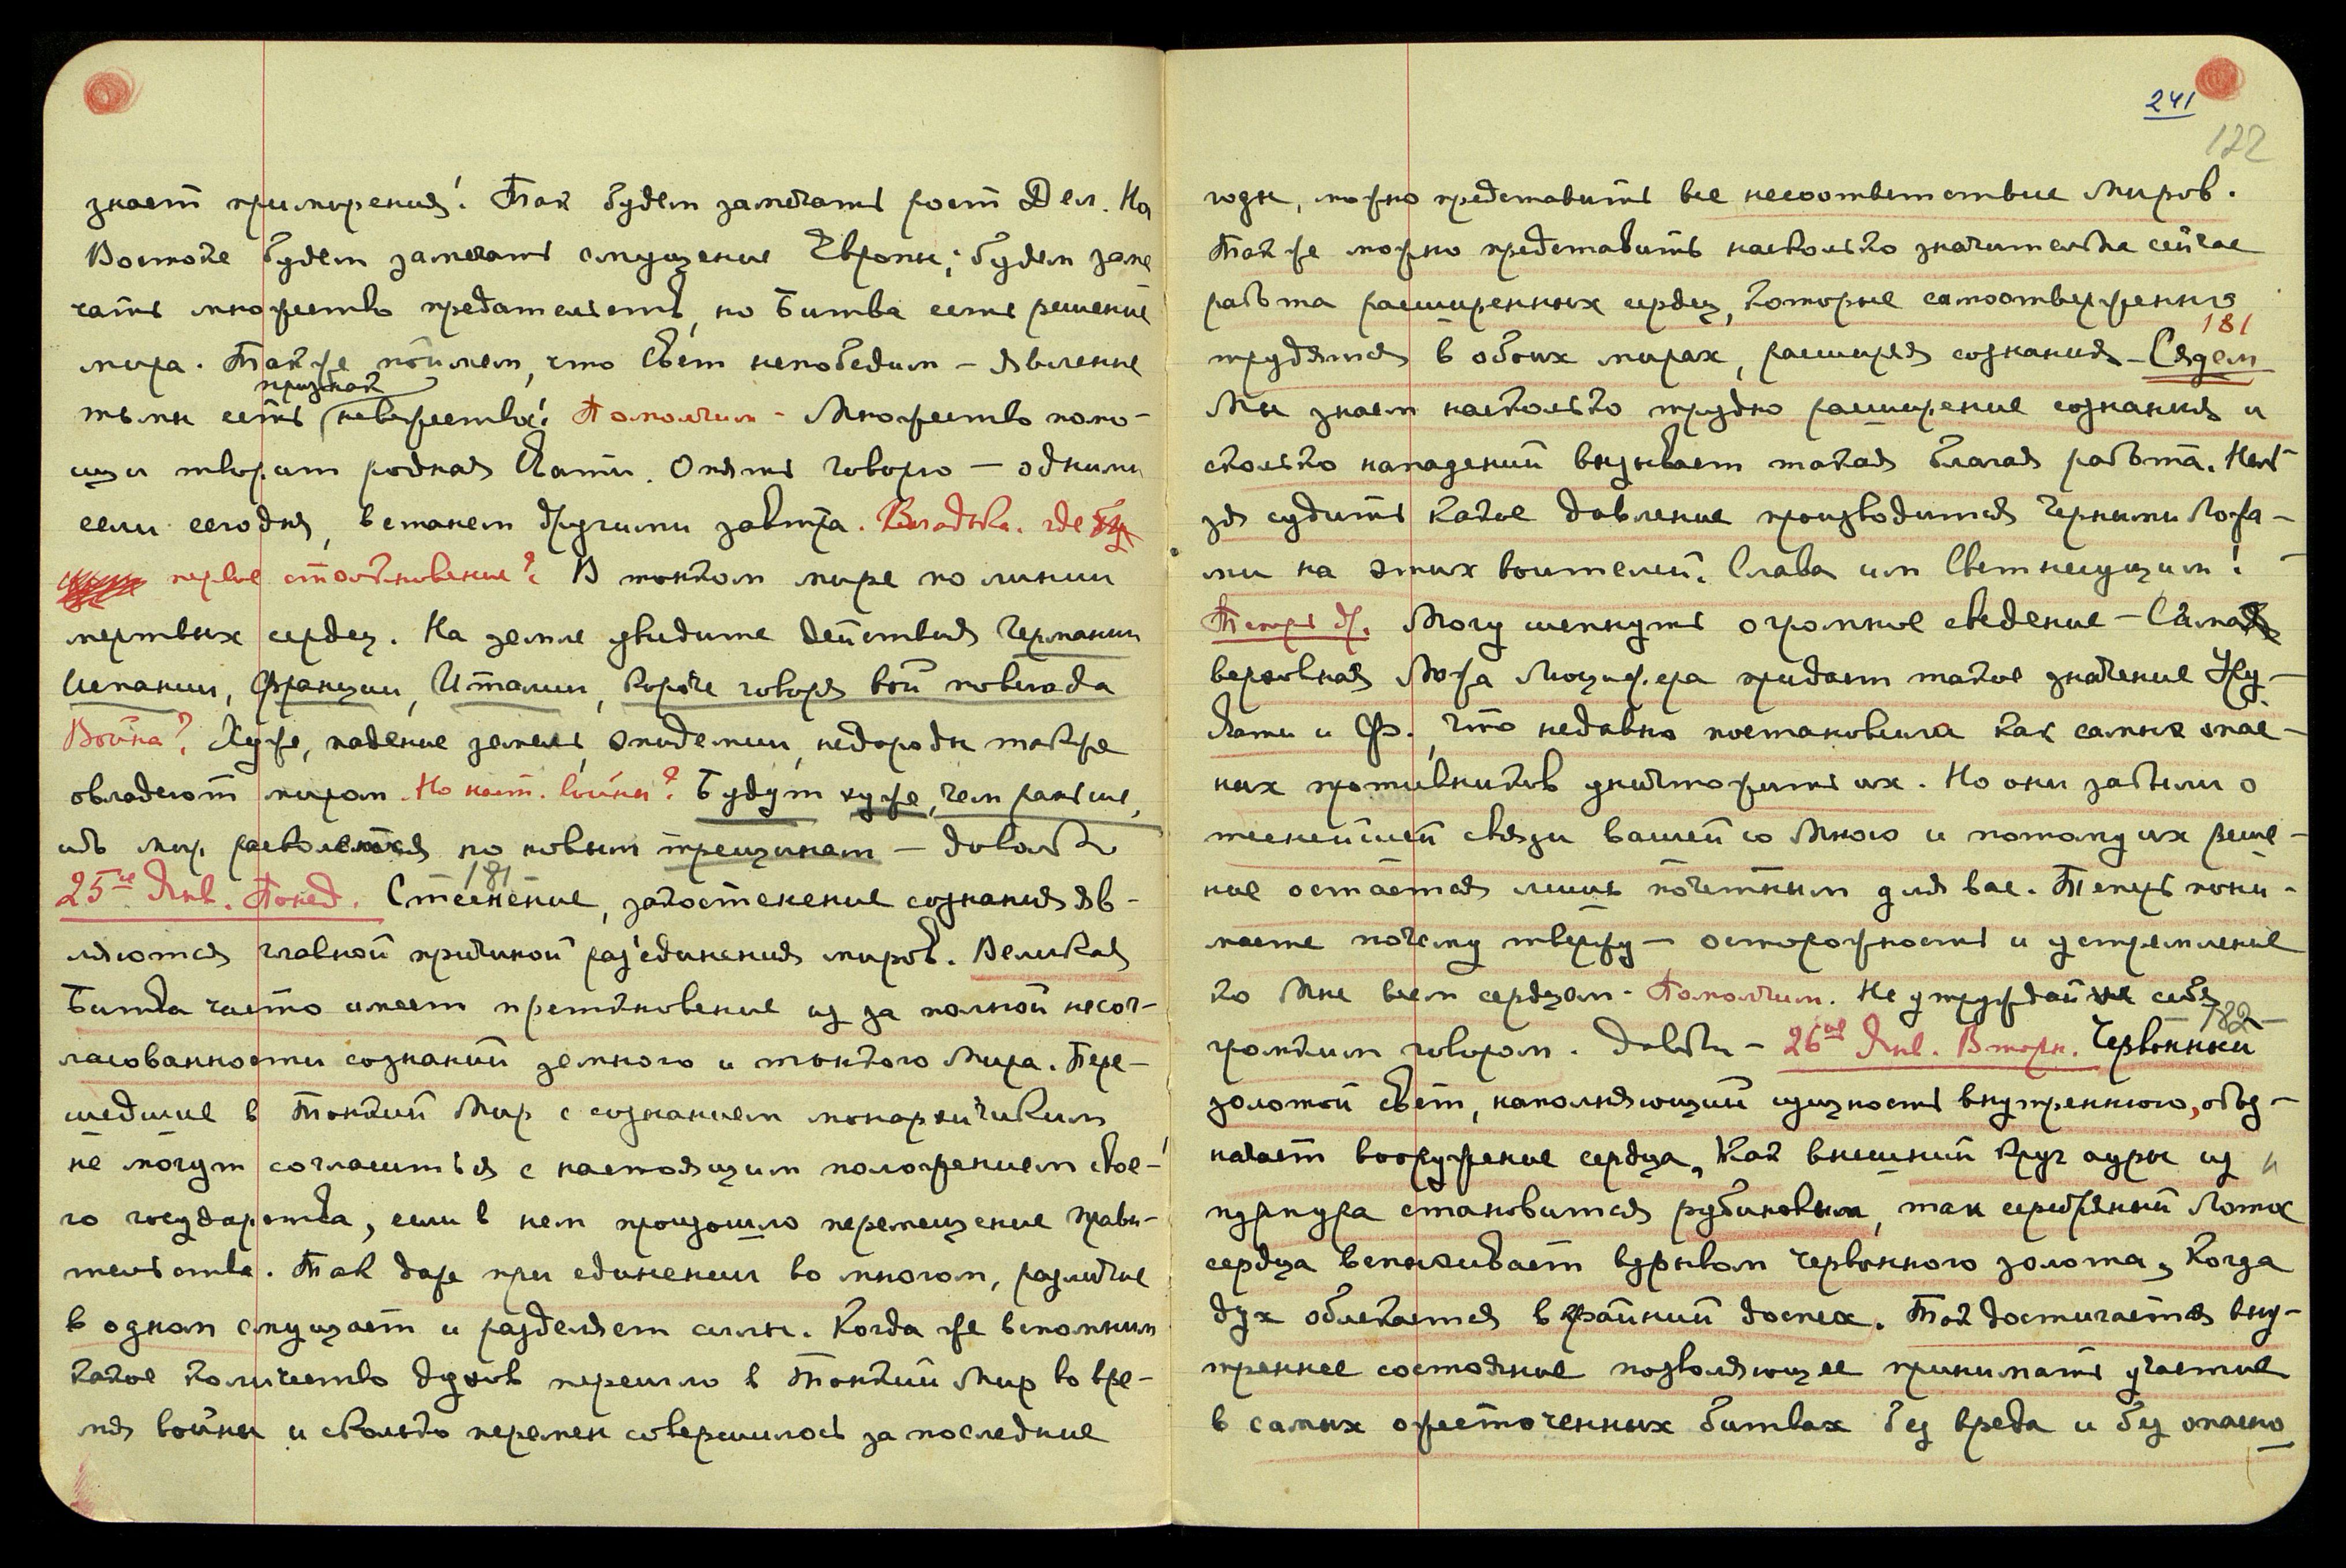 знает примирения! Так будем замечать рост Дел. На
Востоке будем замечать смущение Европы; будем заме
чать множество предательств, но Битва есть решение
мира. Также поймем, что Свет непобедим — явление
признак
тьмы есть невежества! Помолчим - Множество помо-
щи творит родная Урати. Опять говорю — одними
если сегодня, встанем другими завтра. Владыка. где
первое столкновение? В тонком мире по линии
мертвых сердец. На земле увидите действия Германии
Испании, Франции, Италии, короче говоря вой повсюда
Война? Хуже, падение земель, эпидемии, недороды также
овладеют миром. Но наст. войны? Будут хуже, чем раньше,
ибо мир расколется по новым трещинам — довольно
181
25ое Янв. Понед. Стеснение, закостенение сознания яв-
ляются главной причиной раз'единения миров. Великая
Битва часто имеет преткновение из за полной несог-
ласованности сознаний земного и тонкого Мира. Пере-
шедшие в Тонкий Мир с сознанием монархическим
не могут согласиться с настоящим положением свое-
го государства, если в нем произошло перемещение прави-
тельства. Так даже при единении во многом, различие
в одном смущает и разделяет силы. Когда же вспомним
какое количество духов перешло в Тонкий Мир во вре-
мя войны и сколько перемен совершилось за последние
241
122
годы, можно представить все несоответствие миров.
Также можно представить насколько значительна сейчас
работа расширенных сердец, которые самоотверженно
181
трудятся в обоих мирах, расширяя сознания - Сядем
Мы знаем насколько трудно расширение сознания и
сколько нападений вызывает такая благая работа. Нель-
зя судить какое давление производится черными Ложа-
ми на этих воителей. Слава им Светнесущим!
Могу шепнуть огромное сведение — Сама
верховная Ложа Люцифера придает такое значение Ур.
Урати и Ф., что недавно постановила как самых опас-
ных противников уничтожить их. Но они забыли о
теснейшей связи вашей со Мною и потому их реше-
ние остается лишь почетным для вас. Теперь пони-
маете почему твержу — осторожность и устремление
ко Мне всем сердцем - Помолчим. Не утруждай себя
182
громким говором. Довольно - 26ое Янв. Вторн. Червонный
золотой свет, наполняющий сущность внутреннюю, обоз-
начает вооружение сердца, Как внешний круг ауры из
пурпура становится рубиновым, так серебряный Лотос
сердца вспыхивает взрывом червонного золота, Когда
дух облекается в крайний доспех. Так достигается вну-
треннее состояние позволяющее принимать участие
в самых ожесточенных битвах без вреда и без опасно